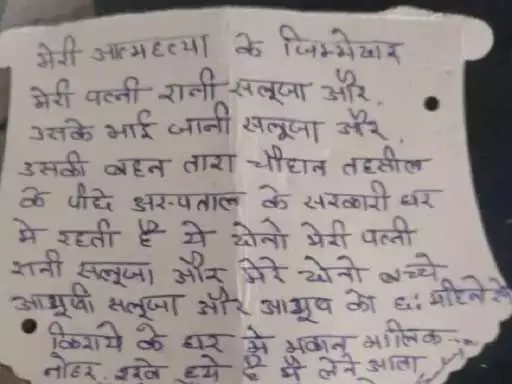 मेरी आत्महत्या के जिम्मेदार
मेरी पत्नी रानी सलूजा और,
उसके भाई जानी सलूजा और,
उसकी बहन तारा चौहान तहसील
के पीछे अस्पताल के सरकारी घर
मे रहती है ये दोनो मेरी पत्नी
रानी सलूजा और मेरे दोनो बच्चे
आयुषी सलूजा और आयुष को छः महिने से
किराये के घर मे मकान मालिक
नोहर रखे हुये है मै लेने आता